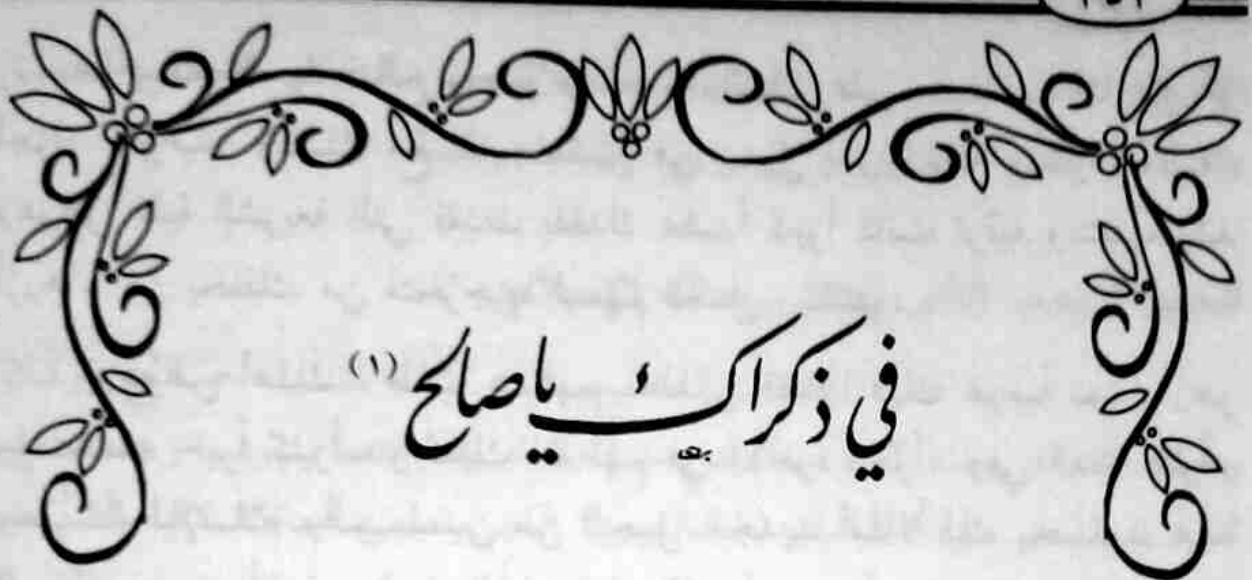 في ذكراك يا صالح (١)